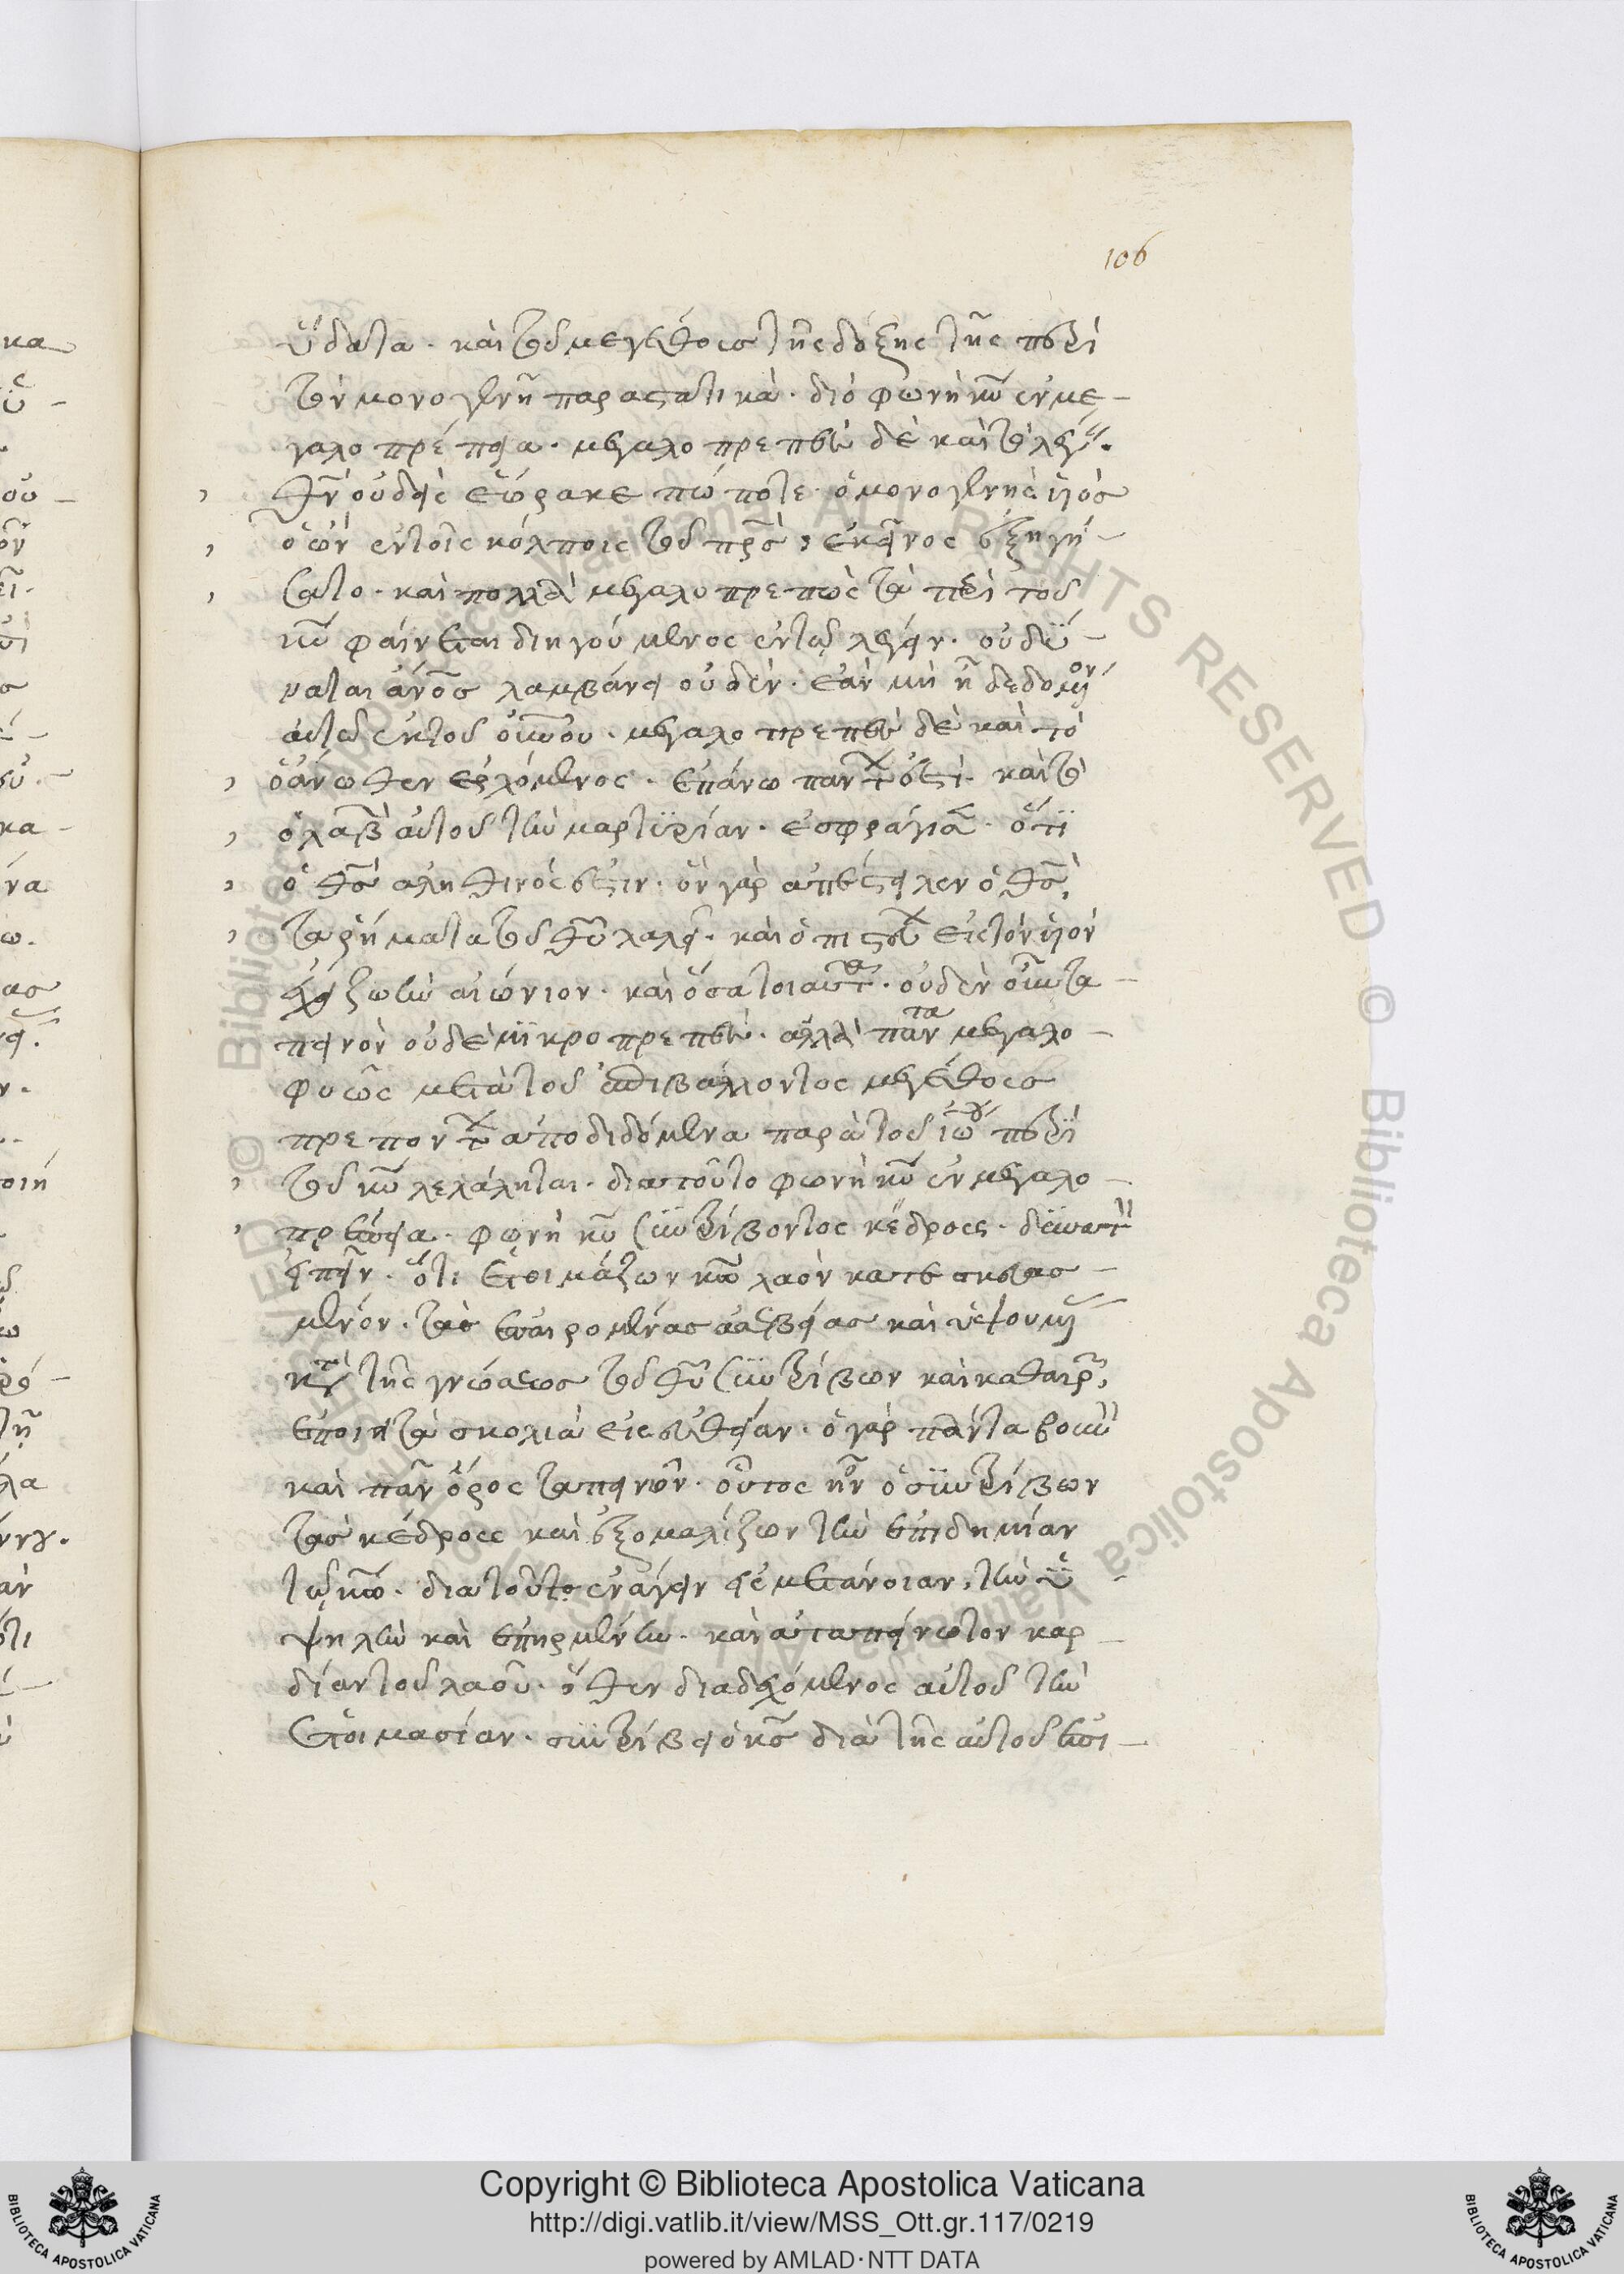 106
ὕδατα. καὶ τοῦ μεγέθους τῆς δόξης τῆς περὶ
τὸν μονογενῆ παραστατικά. διὸ φωνὴ κῡ ἐν με-
γαλοπρέπεια. μεγαλοπρεπὲς δὲ καὶ τὸ λέγειν.
θν̄ οὐδεὶς ἑώρακε πώποτε. ὁ μονογενὴς υἱὸς
ὁ ὢν ἐν τοῖς κόλποις τοῦ πρ̄ς, ἐκεῖνος ἐξηγή-
σατο. καὶ πολλὰ μεγαλοπρεπῶς τὰ περὶ τοῦ
κῡ φαίνεται διηγούμενος ἐν τῷ λέγειν. οὐ δύ-
ναται ἄνο̄ς λαμβάνειν οὐδὲν. ἐὰν μὴ ᾖ δεδομένον
αὐτῷ ἐκ τοῦ οὐνοῦ. μεγαλοπρεπὲς δὲ καὶ τὸ
ὁ ἄνωθεν ἐρχόμενος. ἐπάνω πάντων ἐστὶ. καὶ τὸ
ὁ λαβὼν αὐτοῦ τὴν μαρτυρίαν. ἐσφράγισεν. ὅτι
ὁ θς̄ ἀληθινός ἐστιν. ὃν γὰρ ἀπέστειλεν ὁ θς̄,
τὰ ῥήματα τοῦ θῡ λαλεῖ. καὶ ὁ πιστεύων εἰς τὸν υἱὸν
ἔχει ζωὴν αἰώνιον. καὶ ὅσα τοιαῦτα. οὐδὲν οὖν τα-
πεινὸν οὐδὲ μικροπρεπὲς. ἀλλὰ πάντα μεγαλο-
φυῶς μετὰ τοῦ ἐπιβάλλοντος μεγέθους
πρεπόντως ἀποδιδόμενα παρὰ τοῦ ἰωάννου περὶ
τοῦ κῡ λελάληται. διὰ τοῦτο φωνὴ κῡ ἐν μεγαλο-
πρεπεία. φωνὴ κῡ συντρίβοντος κέδρους. δύναται
εἰπεῖν. ὅτι ἑτοιμάζων κω̄ λαὸν κατεσκευασ-
μένον. τὰς ἐπαιρομένας ἀσεβείας καὶ ὑψουμένας
κατὰ τῆς γνώσεως τοῦ θῡ συντρίβων καὶ καθαιρῶν,
ἐποίει τὰ σκολιὰ εἰς εὐθείαν. ὁ γὰρ πάντα βουνὸν
καὶ πᾶν ὄρος ταπεινῶν. οὗτος ἦν ὁ συντρίβων
τὰς κέδρους καὶ ἐξομαλίζων τὴν ἐπιδημίαν
τῷ κω̄. διὰ τοῦτο ἐνάγειν εἰς μετάνοιαν, τὴν ὑ-
ψηλὴν καὶ ἐπηρμένην. καὶ ἀταπείνωτον καρ-
δίαν τοῦ λαοῦ. ὅθεν διαδεχόμενος αὐτοῦ τὴν
ἑτοιμασίαν. συντρίβει ὁ κς̄ διὰ τῆς αὐτοῦ ἐπι-
Copyright © Biblioteca Apostolica Vaticana
http://digi.vatlib.it/view/MSS_Ott.gr.117/0219
powered by AMLAD·NTT DATA